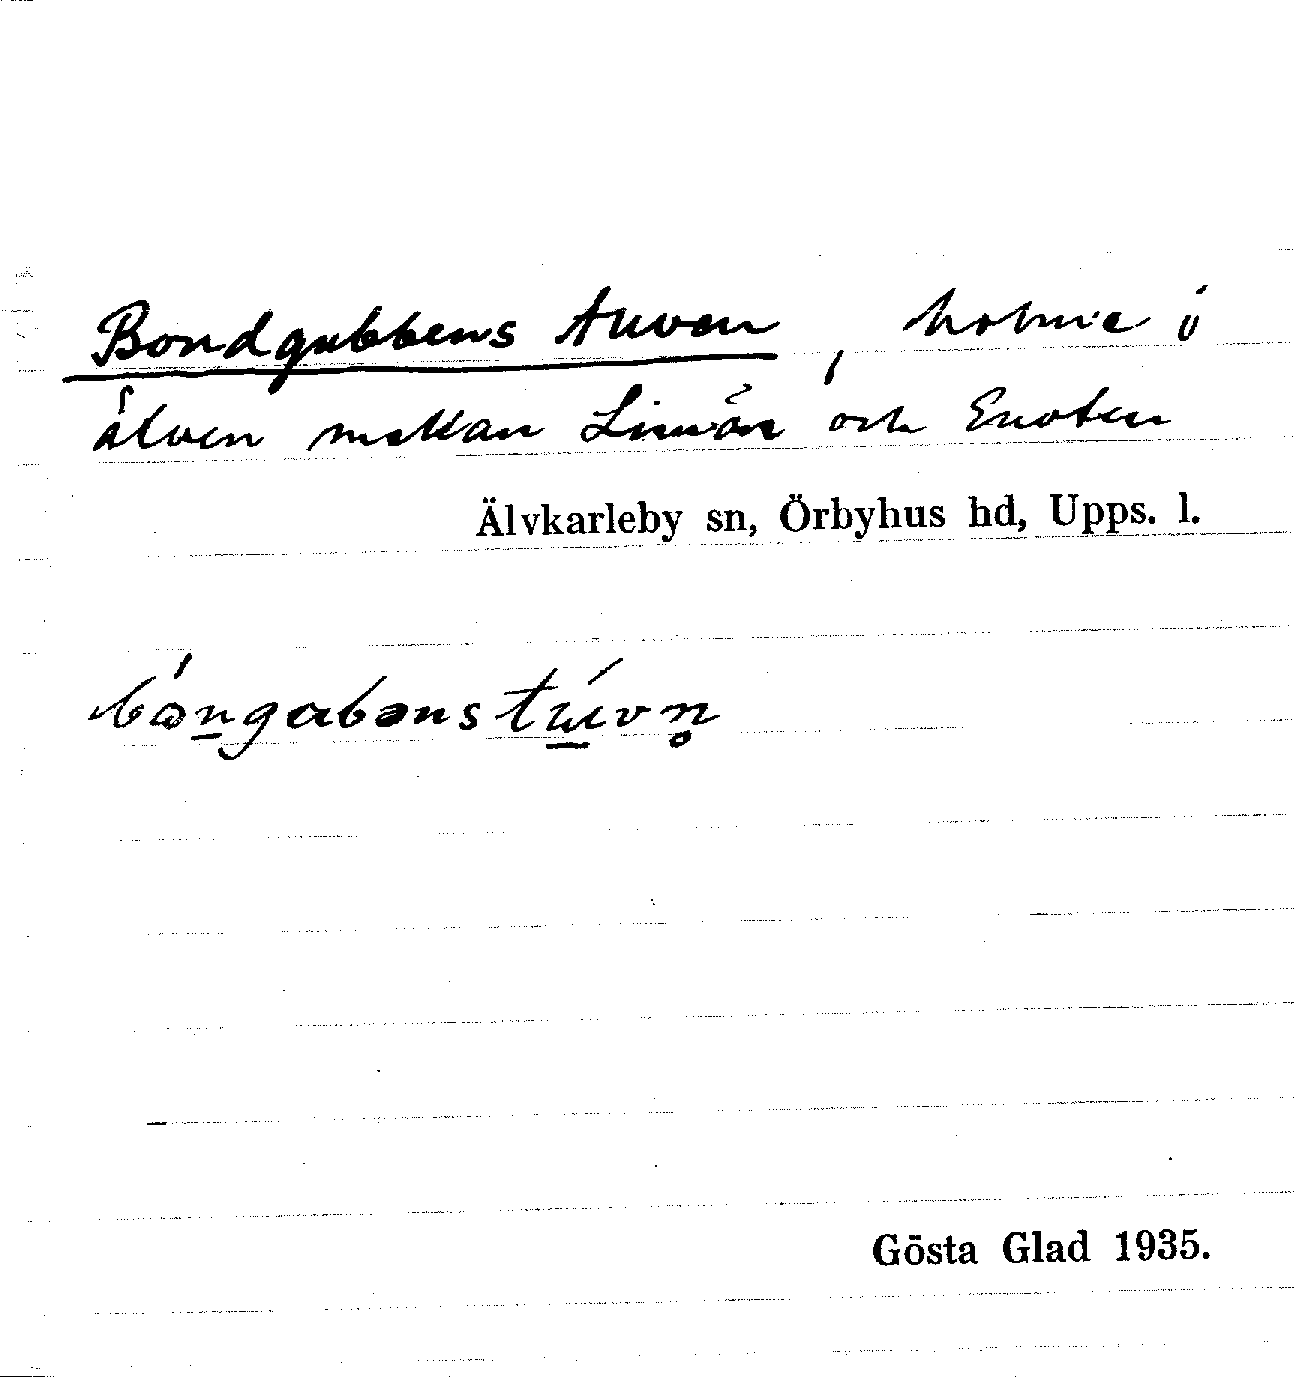 Bondgubbens tuven, holme i
älven mellan Limön och Enoten
Älvkarleby sn, Örbyhus hd, Upps. l.
Gösta Glad 1935.